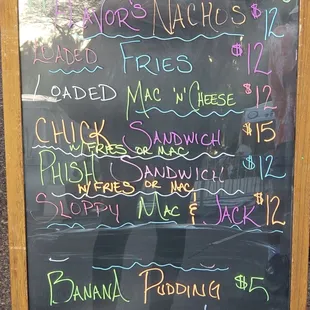 FLAVOR'S NACHOS $12
LOADED FRIES $12
LOADED MAC 'N' CHEESE $12
CHICK SANDWICH $15
W/FRIES OR MAC
PHISH SANDWICH $12
W/FRIES OR MAC
SLOPPY MAC & JACK $12
BANANA PUDDING $5